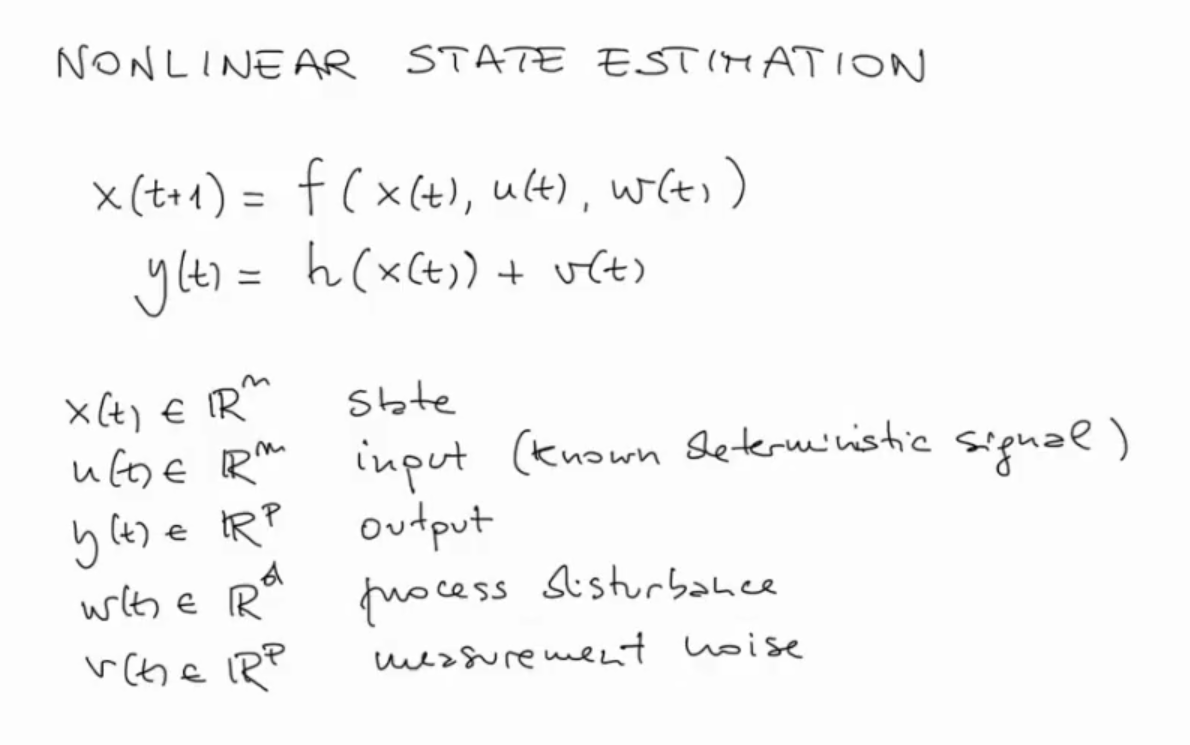 NONLINEAR STATE ESTIMATION
x(t+1) = f(x(t), u(t), w(t))
y(t) = h(x(t)) + v(t)
x(t) ∈ ℝⁿ state
u(t) ∈ ℝᵐ input (known deterministic signal)
y(t) ∈ ℝᵖ output
w(t) ∈ ℝᵈ process disturbance
v(t) ∈ ℝᵖ measurement noise